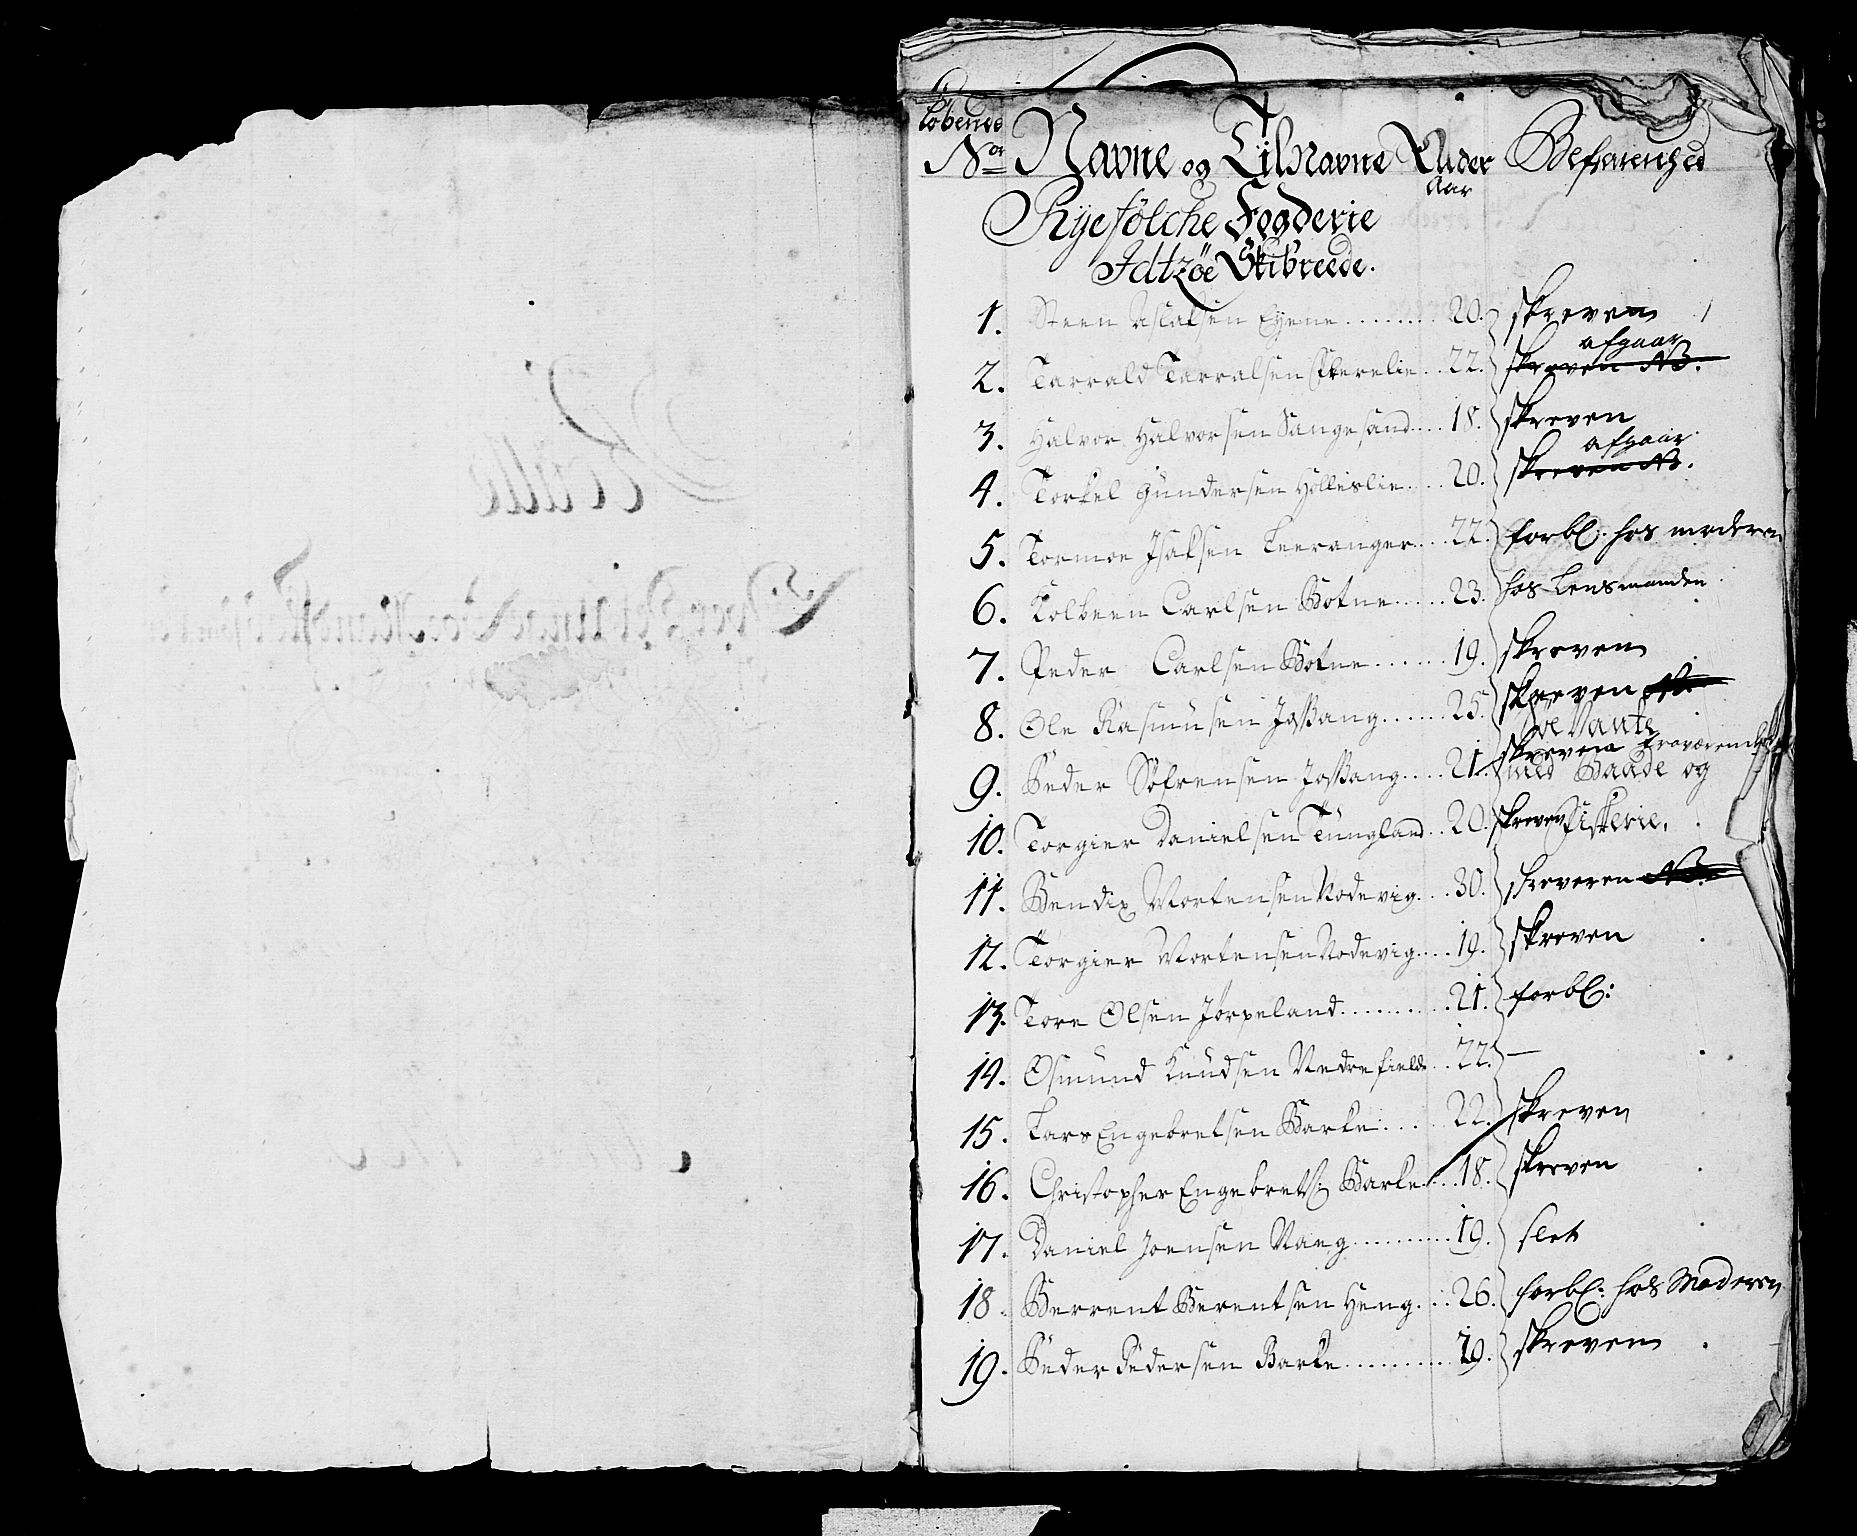 Løbende
No Navne og TilNavne Alder Befarenhed
Aar
Ryefølche Fogderie
Idtzøe Skibreede.
1. Steen Aslaksen Eyene......... 20. skreven
afgaar
2. Tarrald Tarralsen Skerelie.. 22. skreven NB.
3. Halvor Halvorsen Sangesand.... 18. skreven
afgaar
4. Torkel Gundersen Hølleslie.... 20. skreven NB.
5. Tormoe Isaksen Leeranger.... 22. forbl: hos moderen
6. Kolbeen Carlsen Botne...... 23. hos Lensmanden
7. Peder Carlsen Botne....... 19. skreven
8. Ole Rasmusen Jøssang....... 25. skreven
Søe Vante
9. Peder Søfrensen Jøssang..... 21. skreven
med Baade og
10. Torgier Danielsen Tungland.. 20. skreven Fiskerie.
11. Bendix Mortensen Rodevig.... 30. skreveren NB.
12. Torgier Mortensen Rodevig.... 19. skreven
13. Tore Olsen Jørpeland.......... 21. forbl:
14. Osmund Knudsen Nedrefield.. 22. —
15. Lars Engebretsen Barke...... 22. skreven
16. Christopher Engebrets: Barke.... 18. skreven
17. Daniel Joensen Vaeg........... 19. slet
18. Berrent Berentsen Heng.... 26. forbl: hos Moderen
19. Peder Pedersen Barke.......... 19. skreven